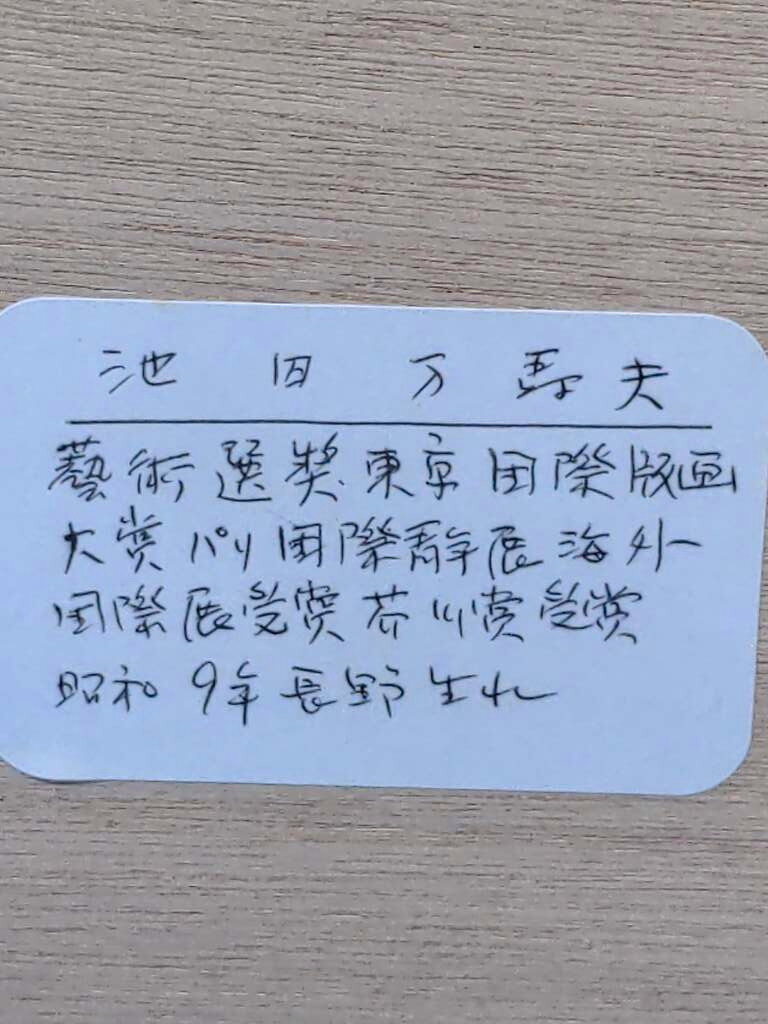 池田万寿夫
藝術選奨東京国際版画
大賞パリ国際青年展海外
国際展受賞芥川賞受賞
昭和9年長野生れ